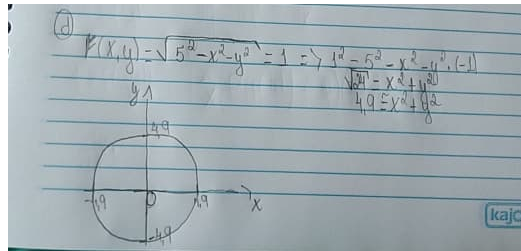 d)
F(x,y) = √5²-x²-y² = 1 => 1² - 5² - x² - y² · (-1)
√24 = x² + y²
4,9 = x² + y²
y
4,9
-4,9 0 4,9 x
-4,9
kajo